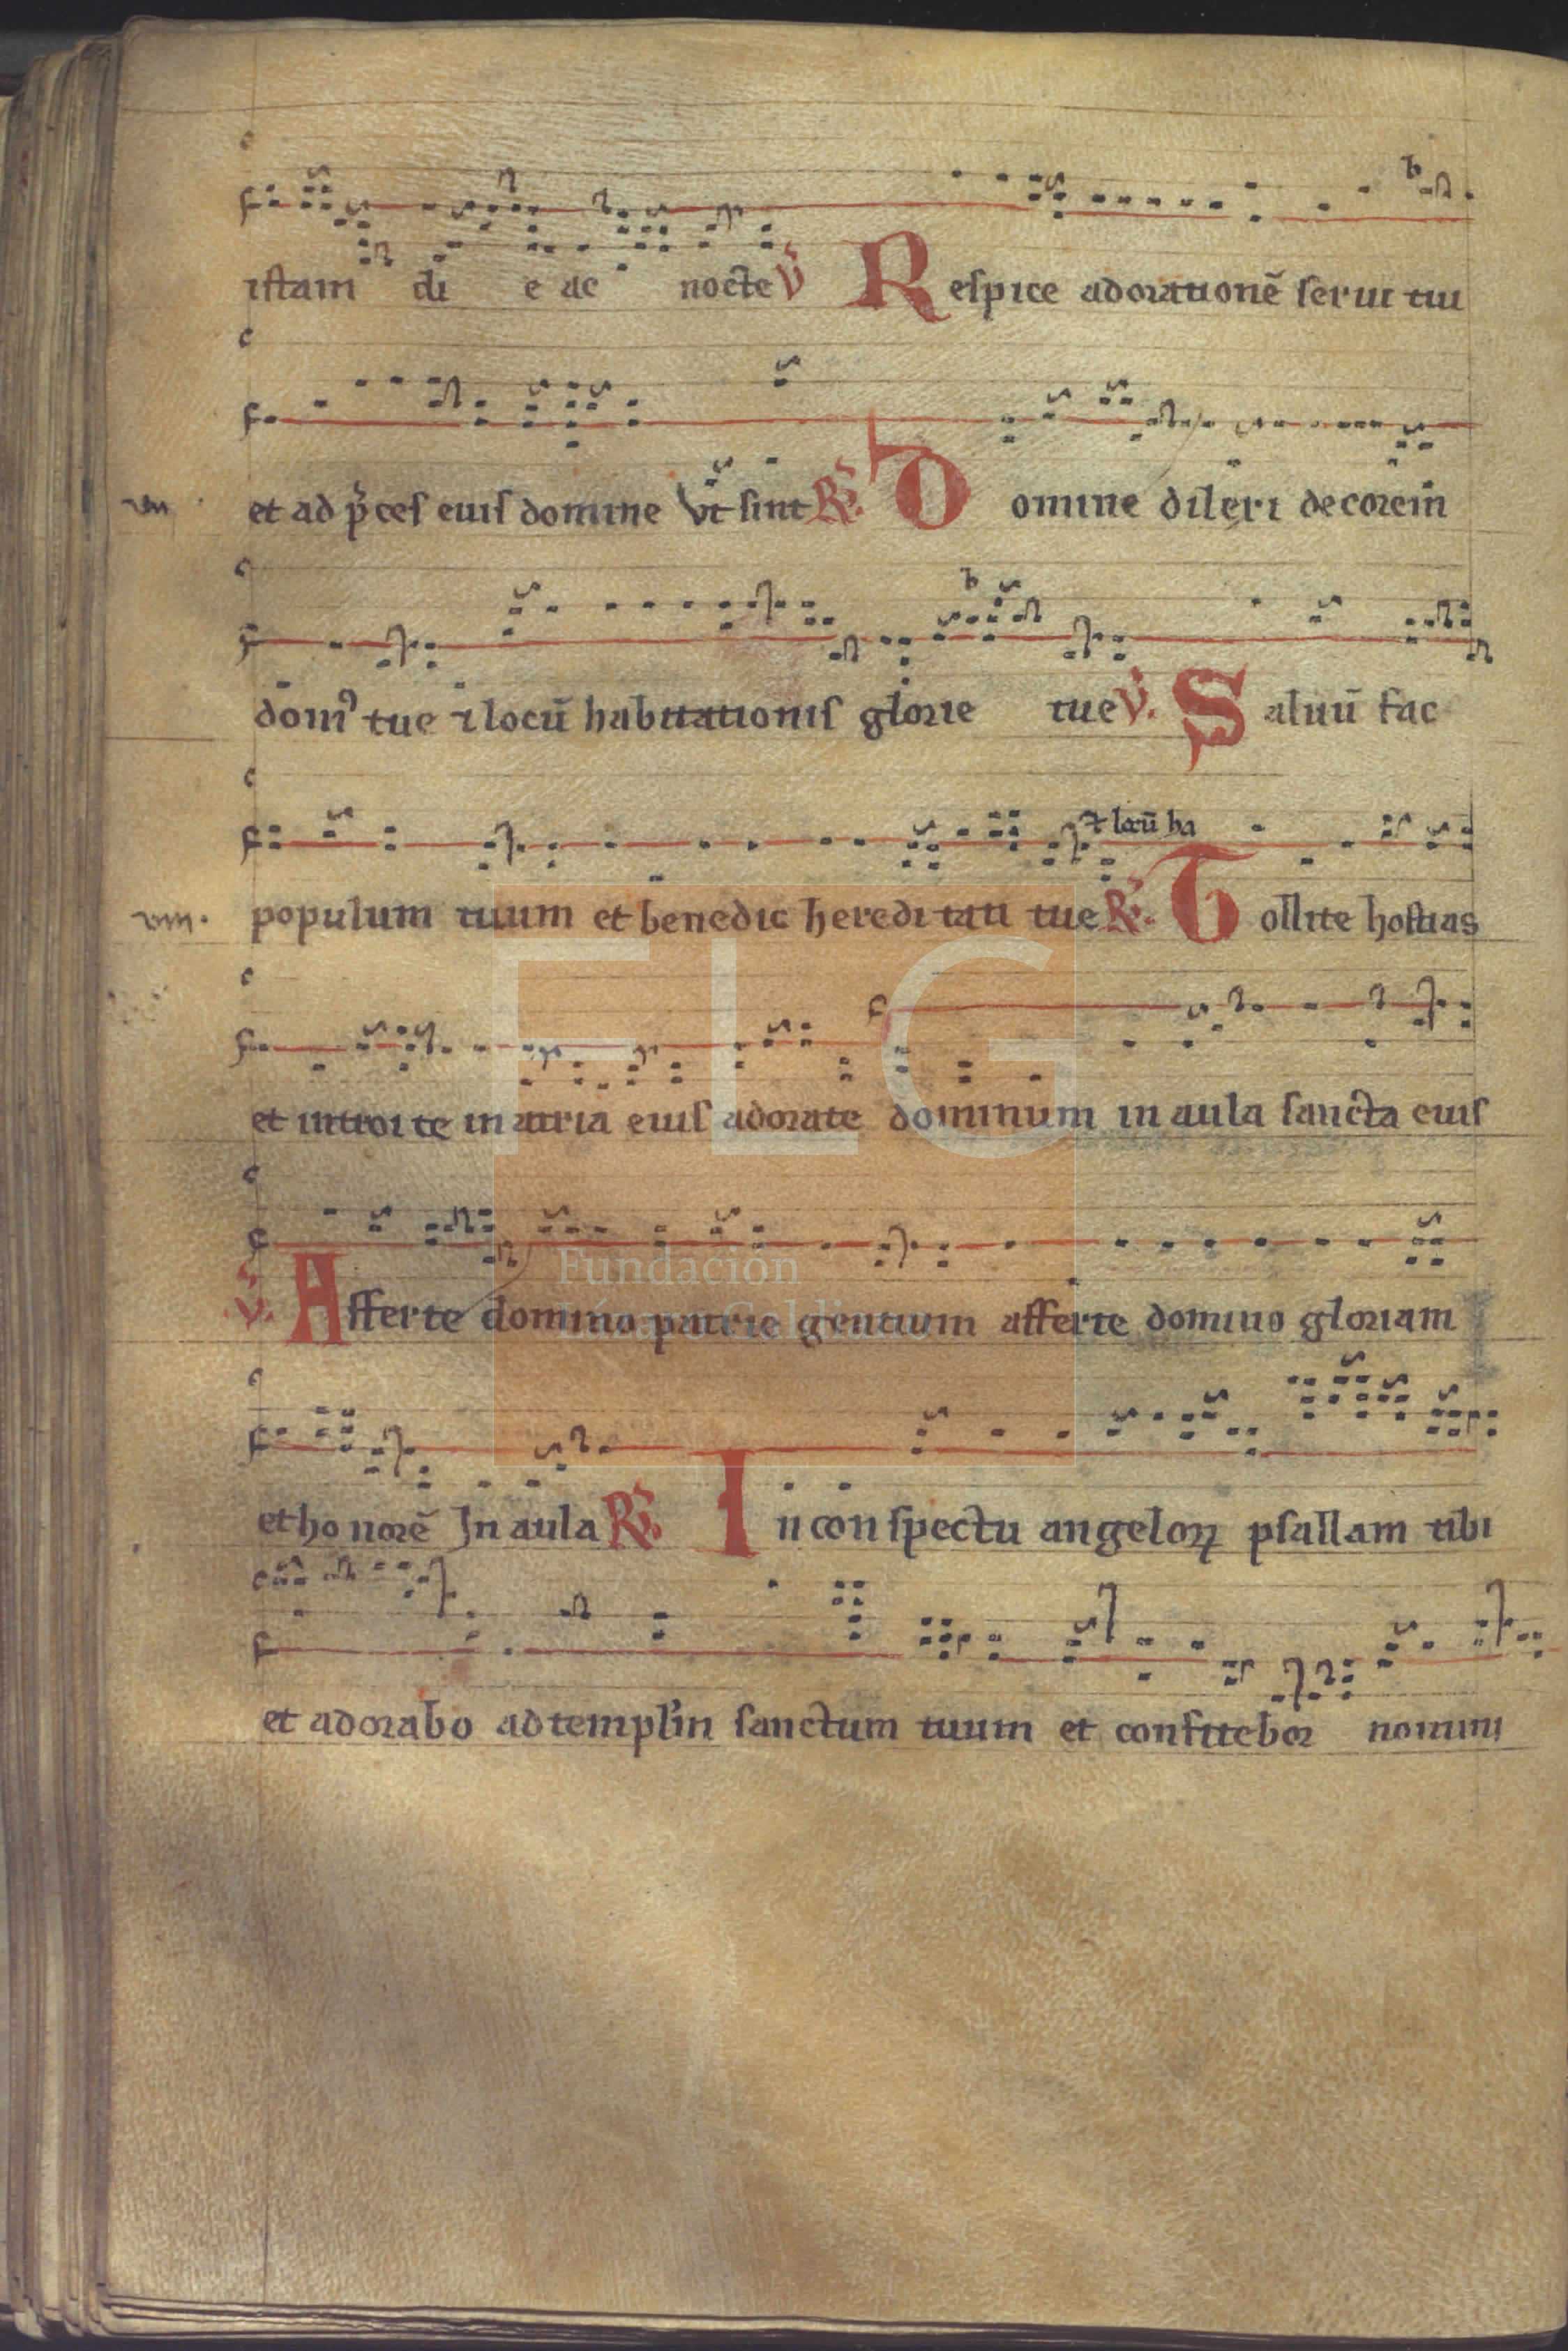 istam di e ac nocte V Respice ad orationē serui tui
et ad p̄ces eius domine Vt sint R. Domine dilexi decorem
vii
dom᾽ tue ⁊ locū habitationis glorie tue V. Saluū fac
⁊ locū ha
populum tuum et benedic heredi tati tue R. Tollite hostias
viii.
et introi te in atria eius adorate dominum in aula sancta eius
V. Afferte domino patrie gentium afferte domino gloriam
et ho norē In aula R. In con spectu angeloꝝ psallam tibi
et adorabo ad templū sanctum tuum et confitebor nomini
FLG
Fundación